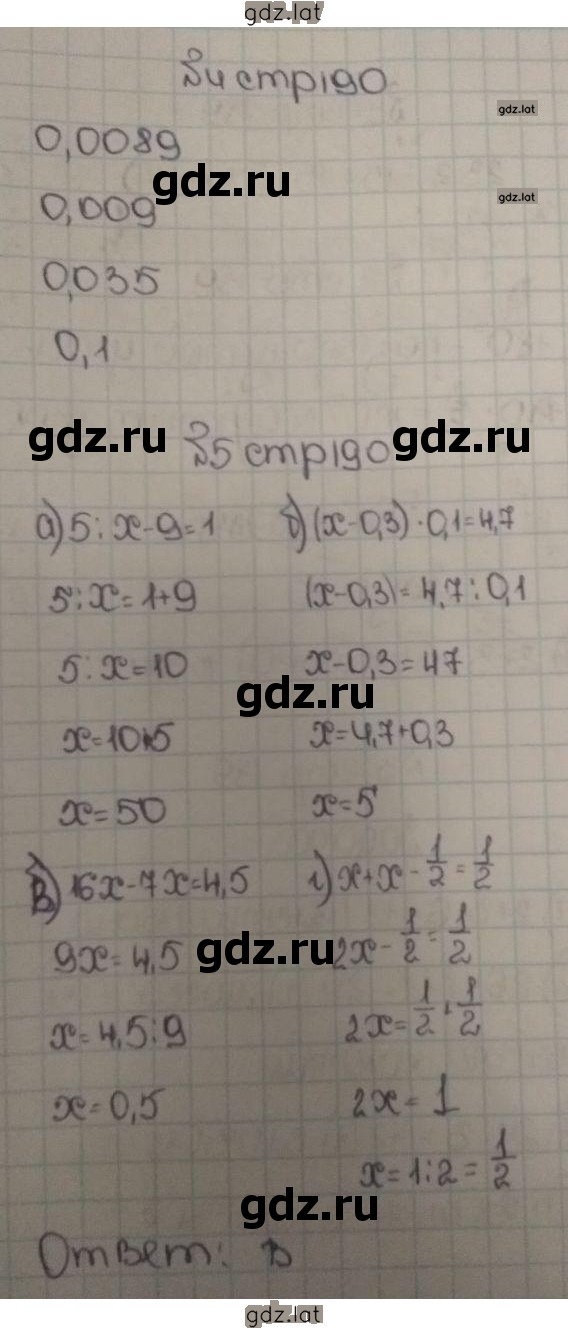 gdz.lat
№4 стр190
gdz.lat
0,0089
gdz.ru
gdz.lat
0,009
0,035
0,1
gdz.ru
№5 стр190
gdz.ru
а) 5:x-9=1
5:x=1+9
5:x=10
x=10·5
x=50
б) (x-0,3)·0,1=4,7
(x-0,3)=4,7:0,1
x-0,3=47
gdz.ru
x=4,7+0,3
x=5
в) 16x-7x=4,5
9x=4,5
gdz.ru
x=4,5:9
x=0,5
г) x+x-1/2=1/2
2x-1/2=1/2
2x=1/2+1/2
2x=1
x=1:2=1/2
gdz.ru
Ответ: в
gdz.lat